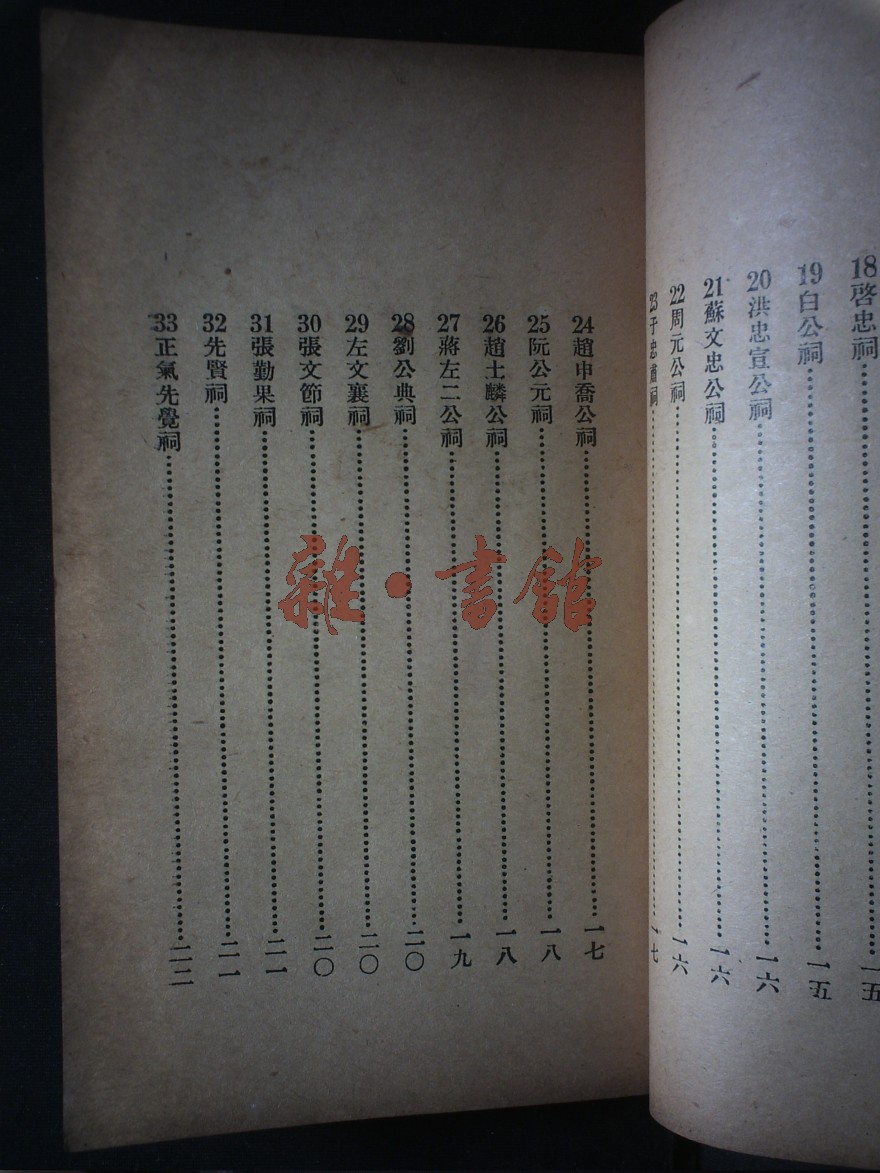 18啓忠祠……一五
19白公祠……一五
20洪忠宣公祠……一六
21蘇文忠公祠……一六
22周元公祠……一六
23于忠肅祠……一七
24趙申喬公祠……一七
25阮公元祠……一八
26趙士麟公祠……一八
27蔣左二公祠……一九
28劉公典祠……二〇
29左文襄祠……二〇
30張文節祠……二〇
31張勤果祠……二一
32先賢祠……二一
33正氣先覺祠……二二
雜·書館